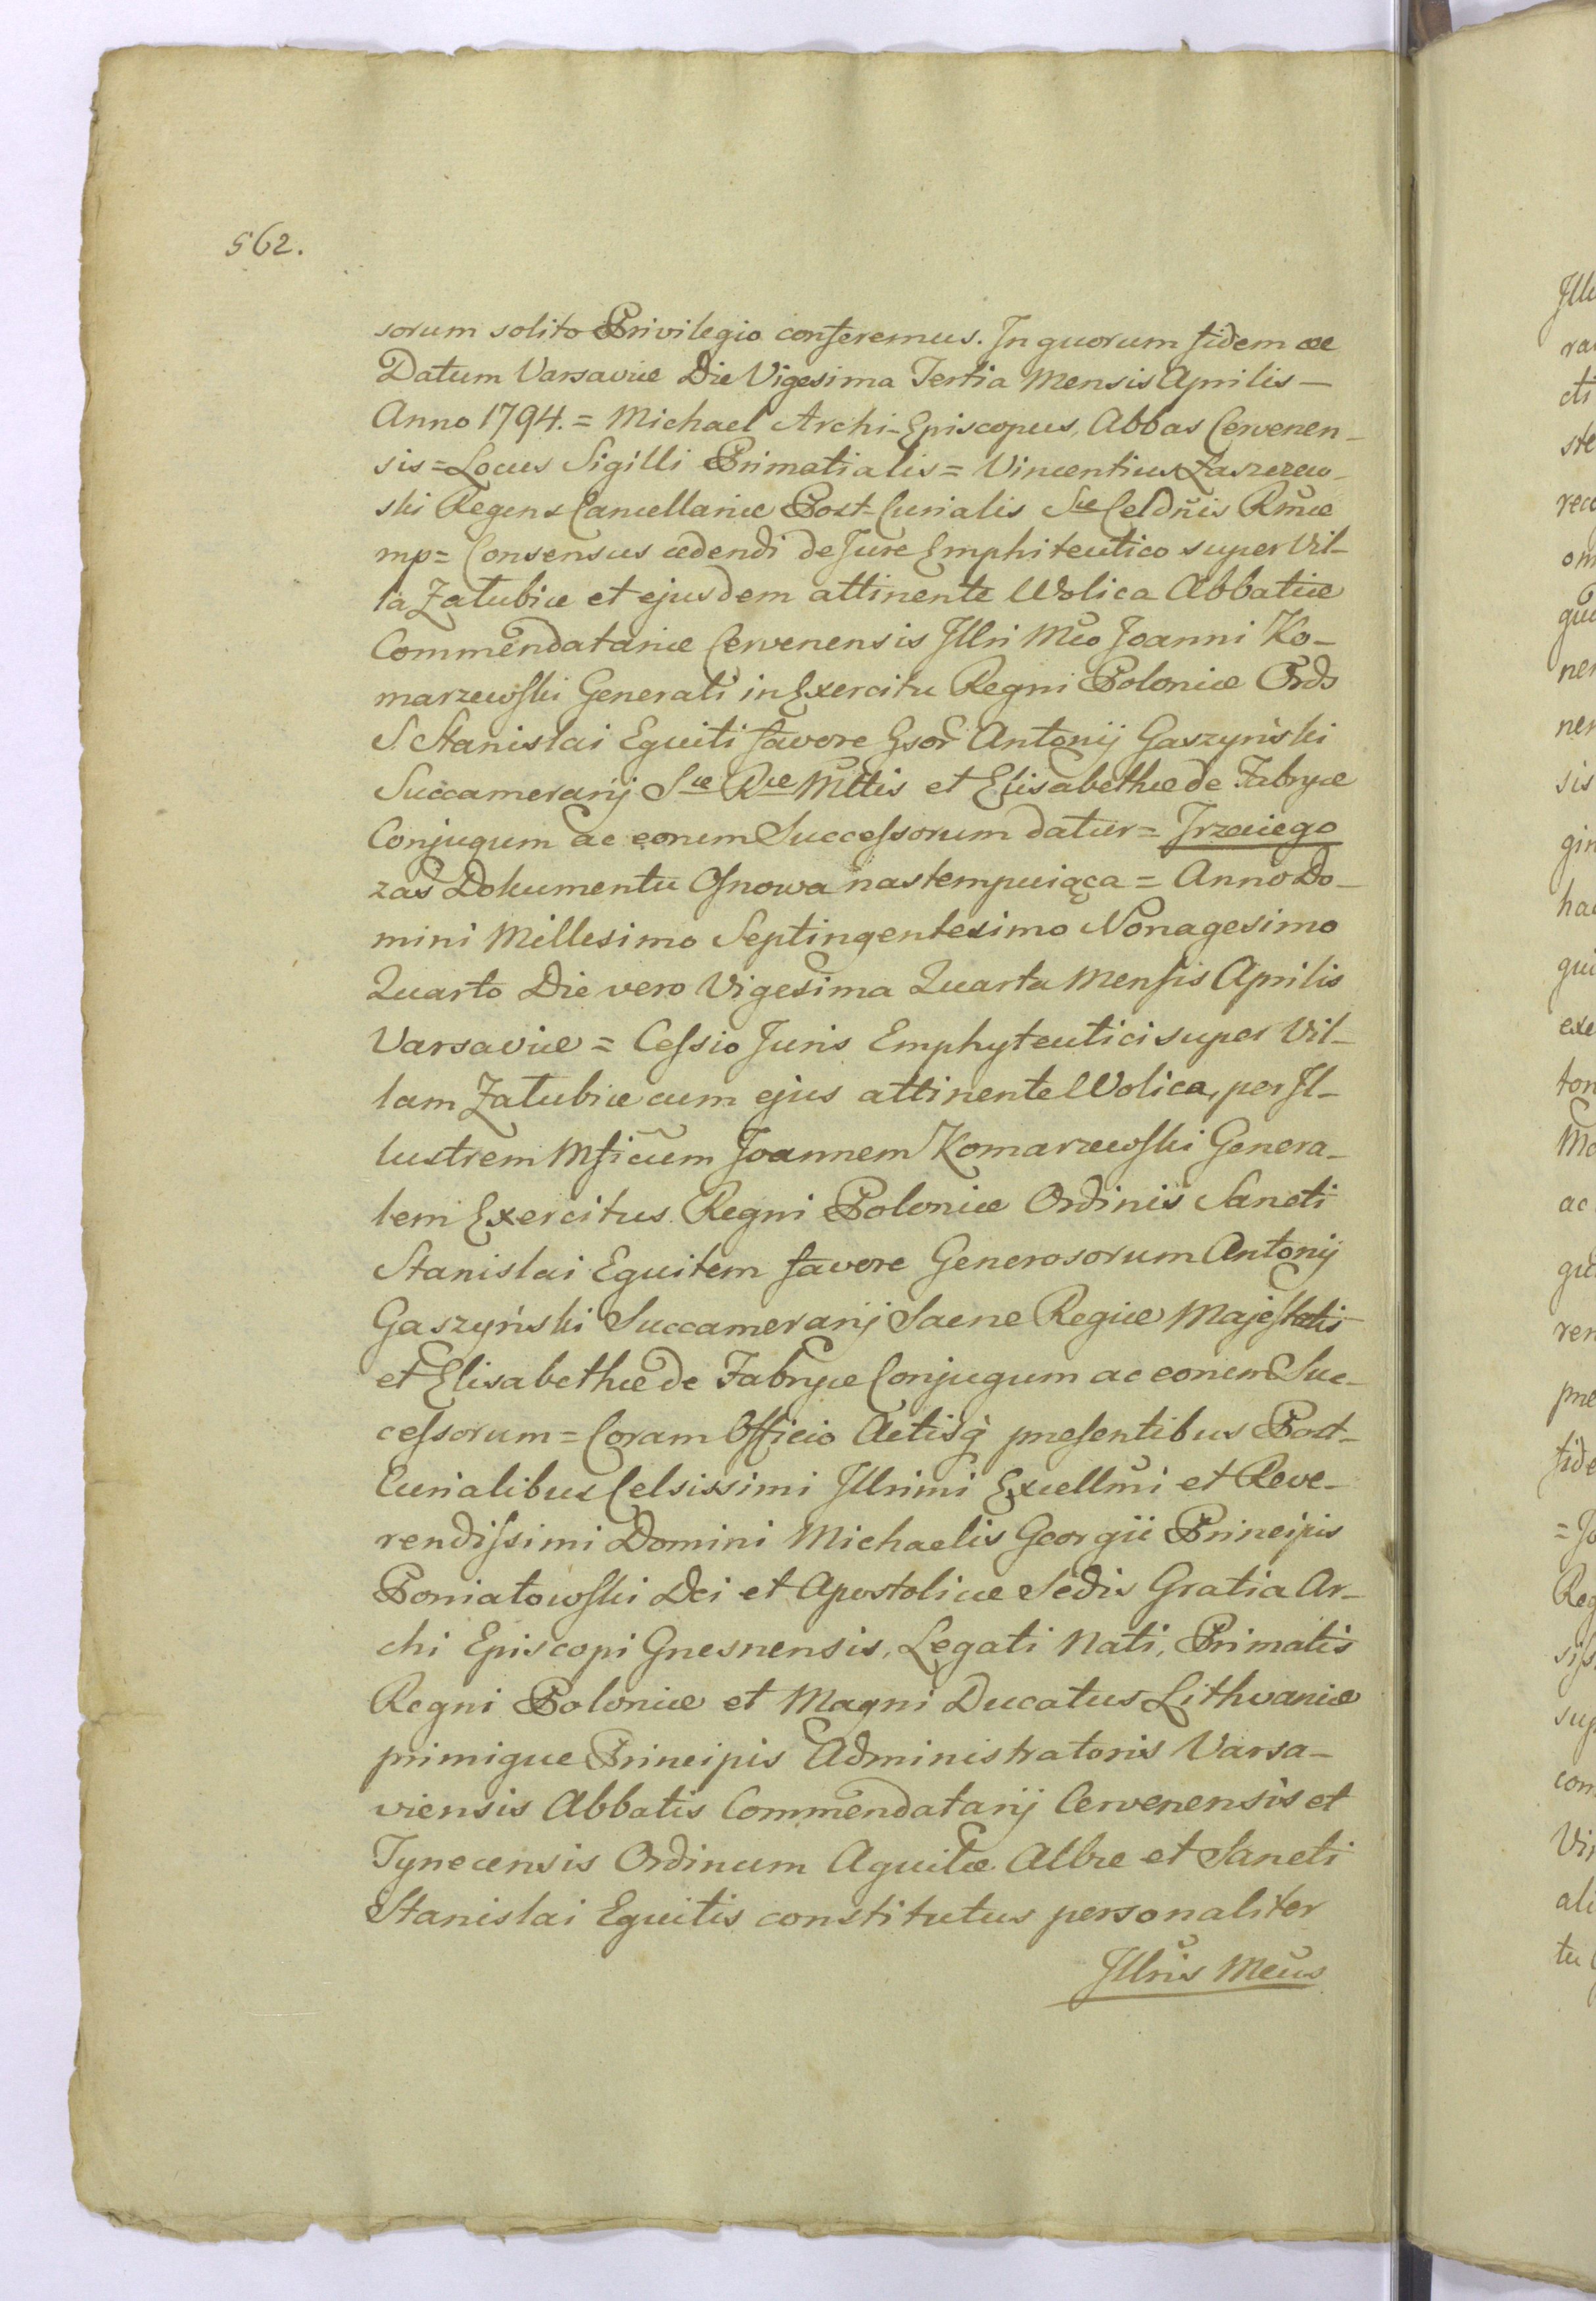 562.
sorum solito Privilegio conferemus. In quorum fidem &c
Datum Varsaviæ Die Vigesima Tertia Mensis Aprilis —
Anno 1794. = Michael Archi-Episcopus, Abbas Cervenen-
sis = Locus Sigilli Primatialis = Vincentius Łaszczew-
ski Regens Cancellariæ Post-Curialis Sæ Celdn̄is Rm̄æ
mp = Consensus cedendi de Jure Emphiteutico super Vil-
la Załubice et ejusdem attinente Wolica Abbatiæ
Commendatariæ Cervenensis Illri Mc̄o Joanni Ko-
marzewski Generali in Exercitu Regni Poloniæ Ords
S. Stanislai Equiti favore Gsor̄ Antonij Gaszyński
Succamerarij Sæ Ræ Mttis et Elisabethæ de Fabryce
Conjugum ac eorum Successorum datur = Trzeciego
zaś Dokumentu Osnowa nastempuiąca = Anno Do-
mini Millesimo Septingentesimo Nonagesimo
Quarto Die vero Vigesima Quarta Mensis Aprilis
Varsaviæ = Cessio Juris Emphyteutici super Vil-
lam Załubice cum ejus attinente Wolica, per Il-
lustrem Mficum Joannem Komarzewski Genera-
lem Exercitus Regni Poloniæ Ordinis Sancti
Stanislai Equitem favore Generosorum Antonij
Gaszyński Succamerarij Sacræ Regiæ Majestatis
et Elisabethæ de Fabryce Conjugum ac eorum Suc-
cessorum = Coram Officio Actisq̀ presentibus Post-
Curialibus Celsissimi Illrimi Excellm̄i et Reve-
rendissimi Domini Michaelis Georgii Principis
Poniatowski Dei et Apostolicæ Sedis Gratia Ar-
chi Episcopi Gnesnensis, Legati Nati, Primatis
Regni Poloniæ et Magni Ducatus Lithvaniæ
primique Principis Administratoris Varsa-
viensis Abbatis Commendatarij Cervenensis et
Tynecensis Ordinum Aquilæ Albæ et Sancti
Stanislai Equitis constitutus personaliter
Illris Mc̄us